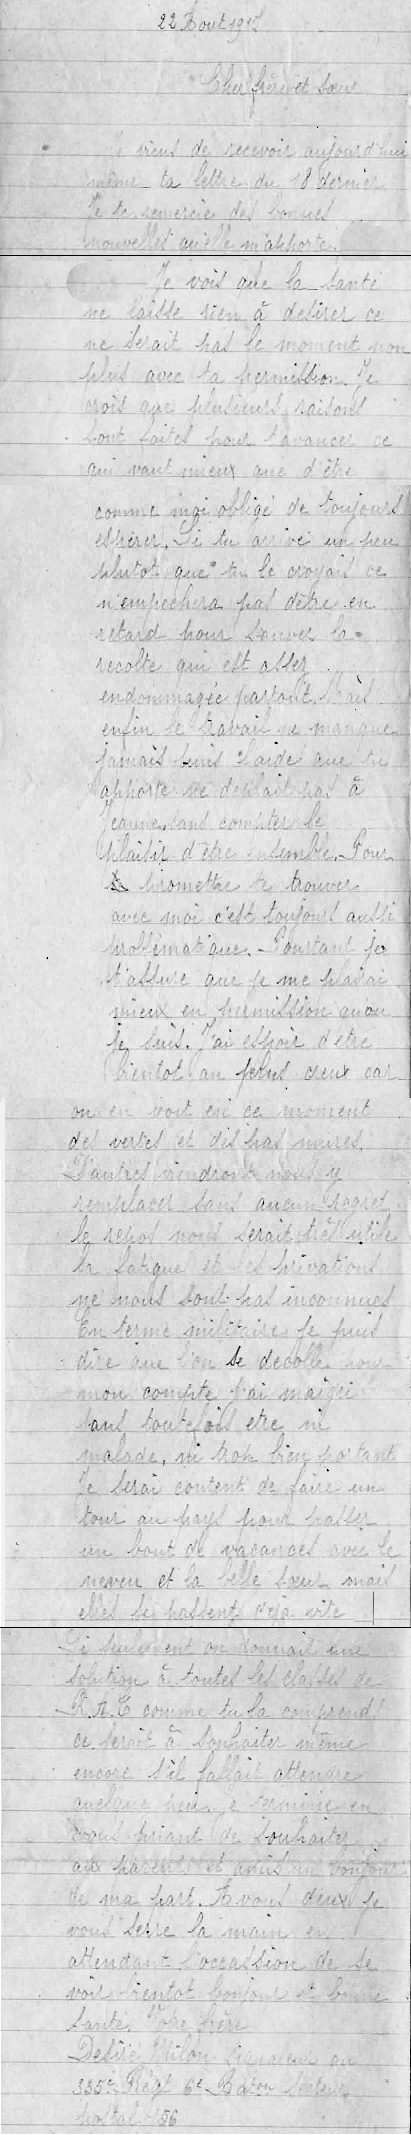 22 Aout 1917
Cher frère et sœur
Je viens de recevoir aujourd'hui
même ta lettre du 18 dernier
Je te remercie des bonnes
nouvelles qu'elle m'apporte.
Je vois que la santé
ne laisse rien à desirer ce
ne serait pas le moment non
plus avec ta permission. Je
crois que plusieurs raisons
sont faites pour t'avancer ce
qui vaut mieux que d'être
comme moi obligé de toujours
espérer. Si tu arrive un peu
plutot que tu le croyais ce
n'empechera pas d'être en
retard pour sauver la
recolte qui est assez
endommagée partout. Mais
enfin le travail ne manque
jamais puis l'aide que tu
apporte ne deplait pas à
Jeanne, sans compter le
plaisir d'être ensemble. Pour
promettre te trouver
avec moi c'est toujours aussi
problématique. Pourtant je
t'assure que je me plairai
mieux en permission qu'ou
je suis. J'ai espoir d'etre
bientot au plus creux car
on en voit en ce moment
des vertes et des pas mures.
D'autres viendront nous y
remplacer sans aucun regret
le repos nous serait très utile
la fatigue et les privations
ne nous sont pas inconnues
En terme militaire je puis
dire que l'on se decolle pour
mon compte j'ai maigri
sans toutefois etre ni
malade, ni trop bien portant
Je serai content de faire un
tour au pays pour passer
un bout de vacances avec le
neveu et la belle sœur mais
elles se passent deja vite
Si seulement on donnait une
solution à toutes les classes de
R.A.T comme tu la comprends
ce serait à souhaiter même
encore s'il fallait attendre
quelque peu. Je termine en
vous priant de souhaiter
aux parents et amis un bonjour
de ma part. A vous deux je
vous serre la main en
attendant l'occassion de se
voir bientot bonjour et bonne
santé. Votre frère
Desiré Milon signaleur au
335e Regt 6e Baton Secteur
postal 156